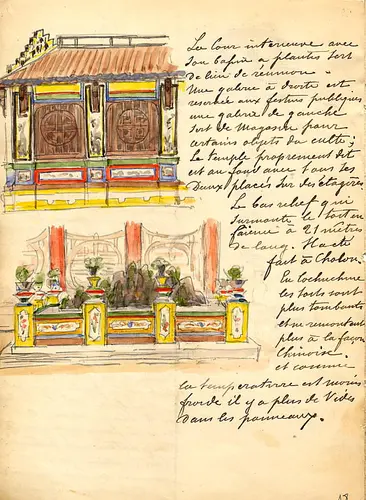 La Cour interieure avec
son bassin à plantes sert
de lieu de reunion.
Une galerie à droite est
reservée aux festins publiques
une galerie de gauche
sert de Magasin pour
certains objets du culte;
Le Temple proprement dit
est au fond avec tous les
Dieux placés sur des étagères
Le bas relief qui
surmonte le toit en
faience a 21 mètres
de long. Il a été
fait à Cholon.
En Cochinchine
les toits sont
plus tombants
et ne remontent
plus à la façon
Chinoise.
et comme
la température est moins
froide il y a plus de Vides
dans les panneaux.
18